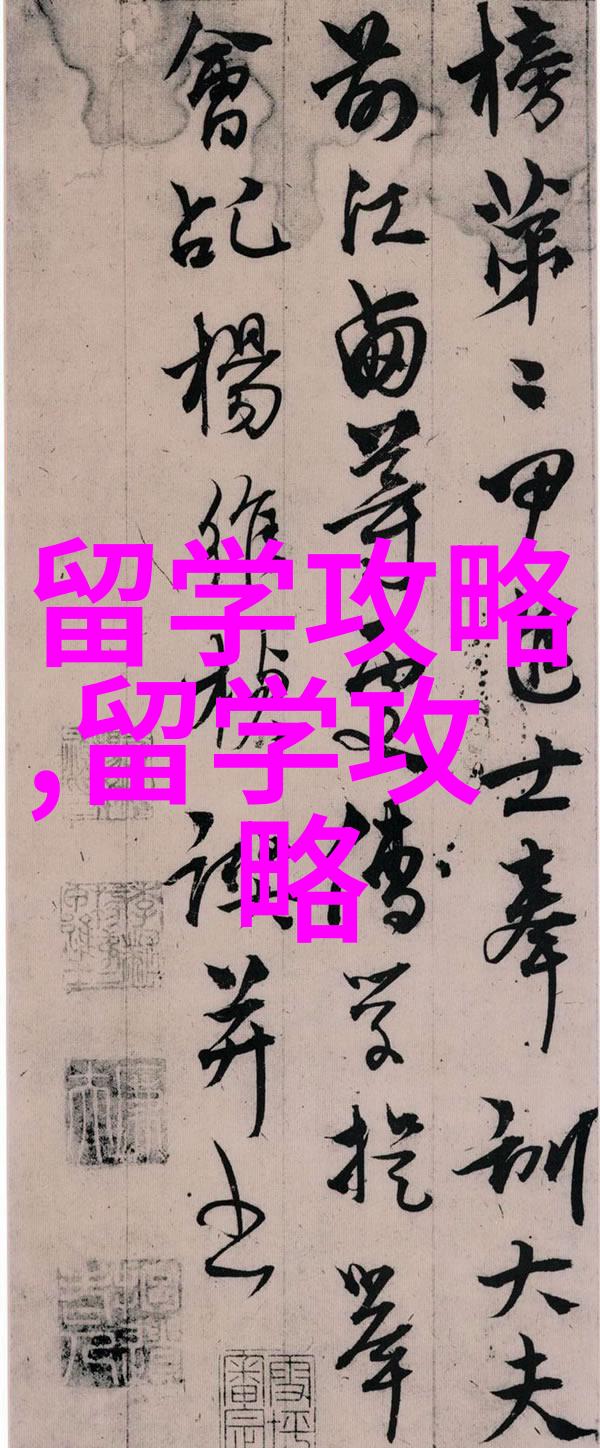 榜第二甲進士奉訓大夫
前江西等處儒學提舉
會稽楊維禎譔并書
留学攻略
,留学攻
略